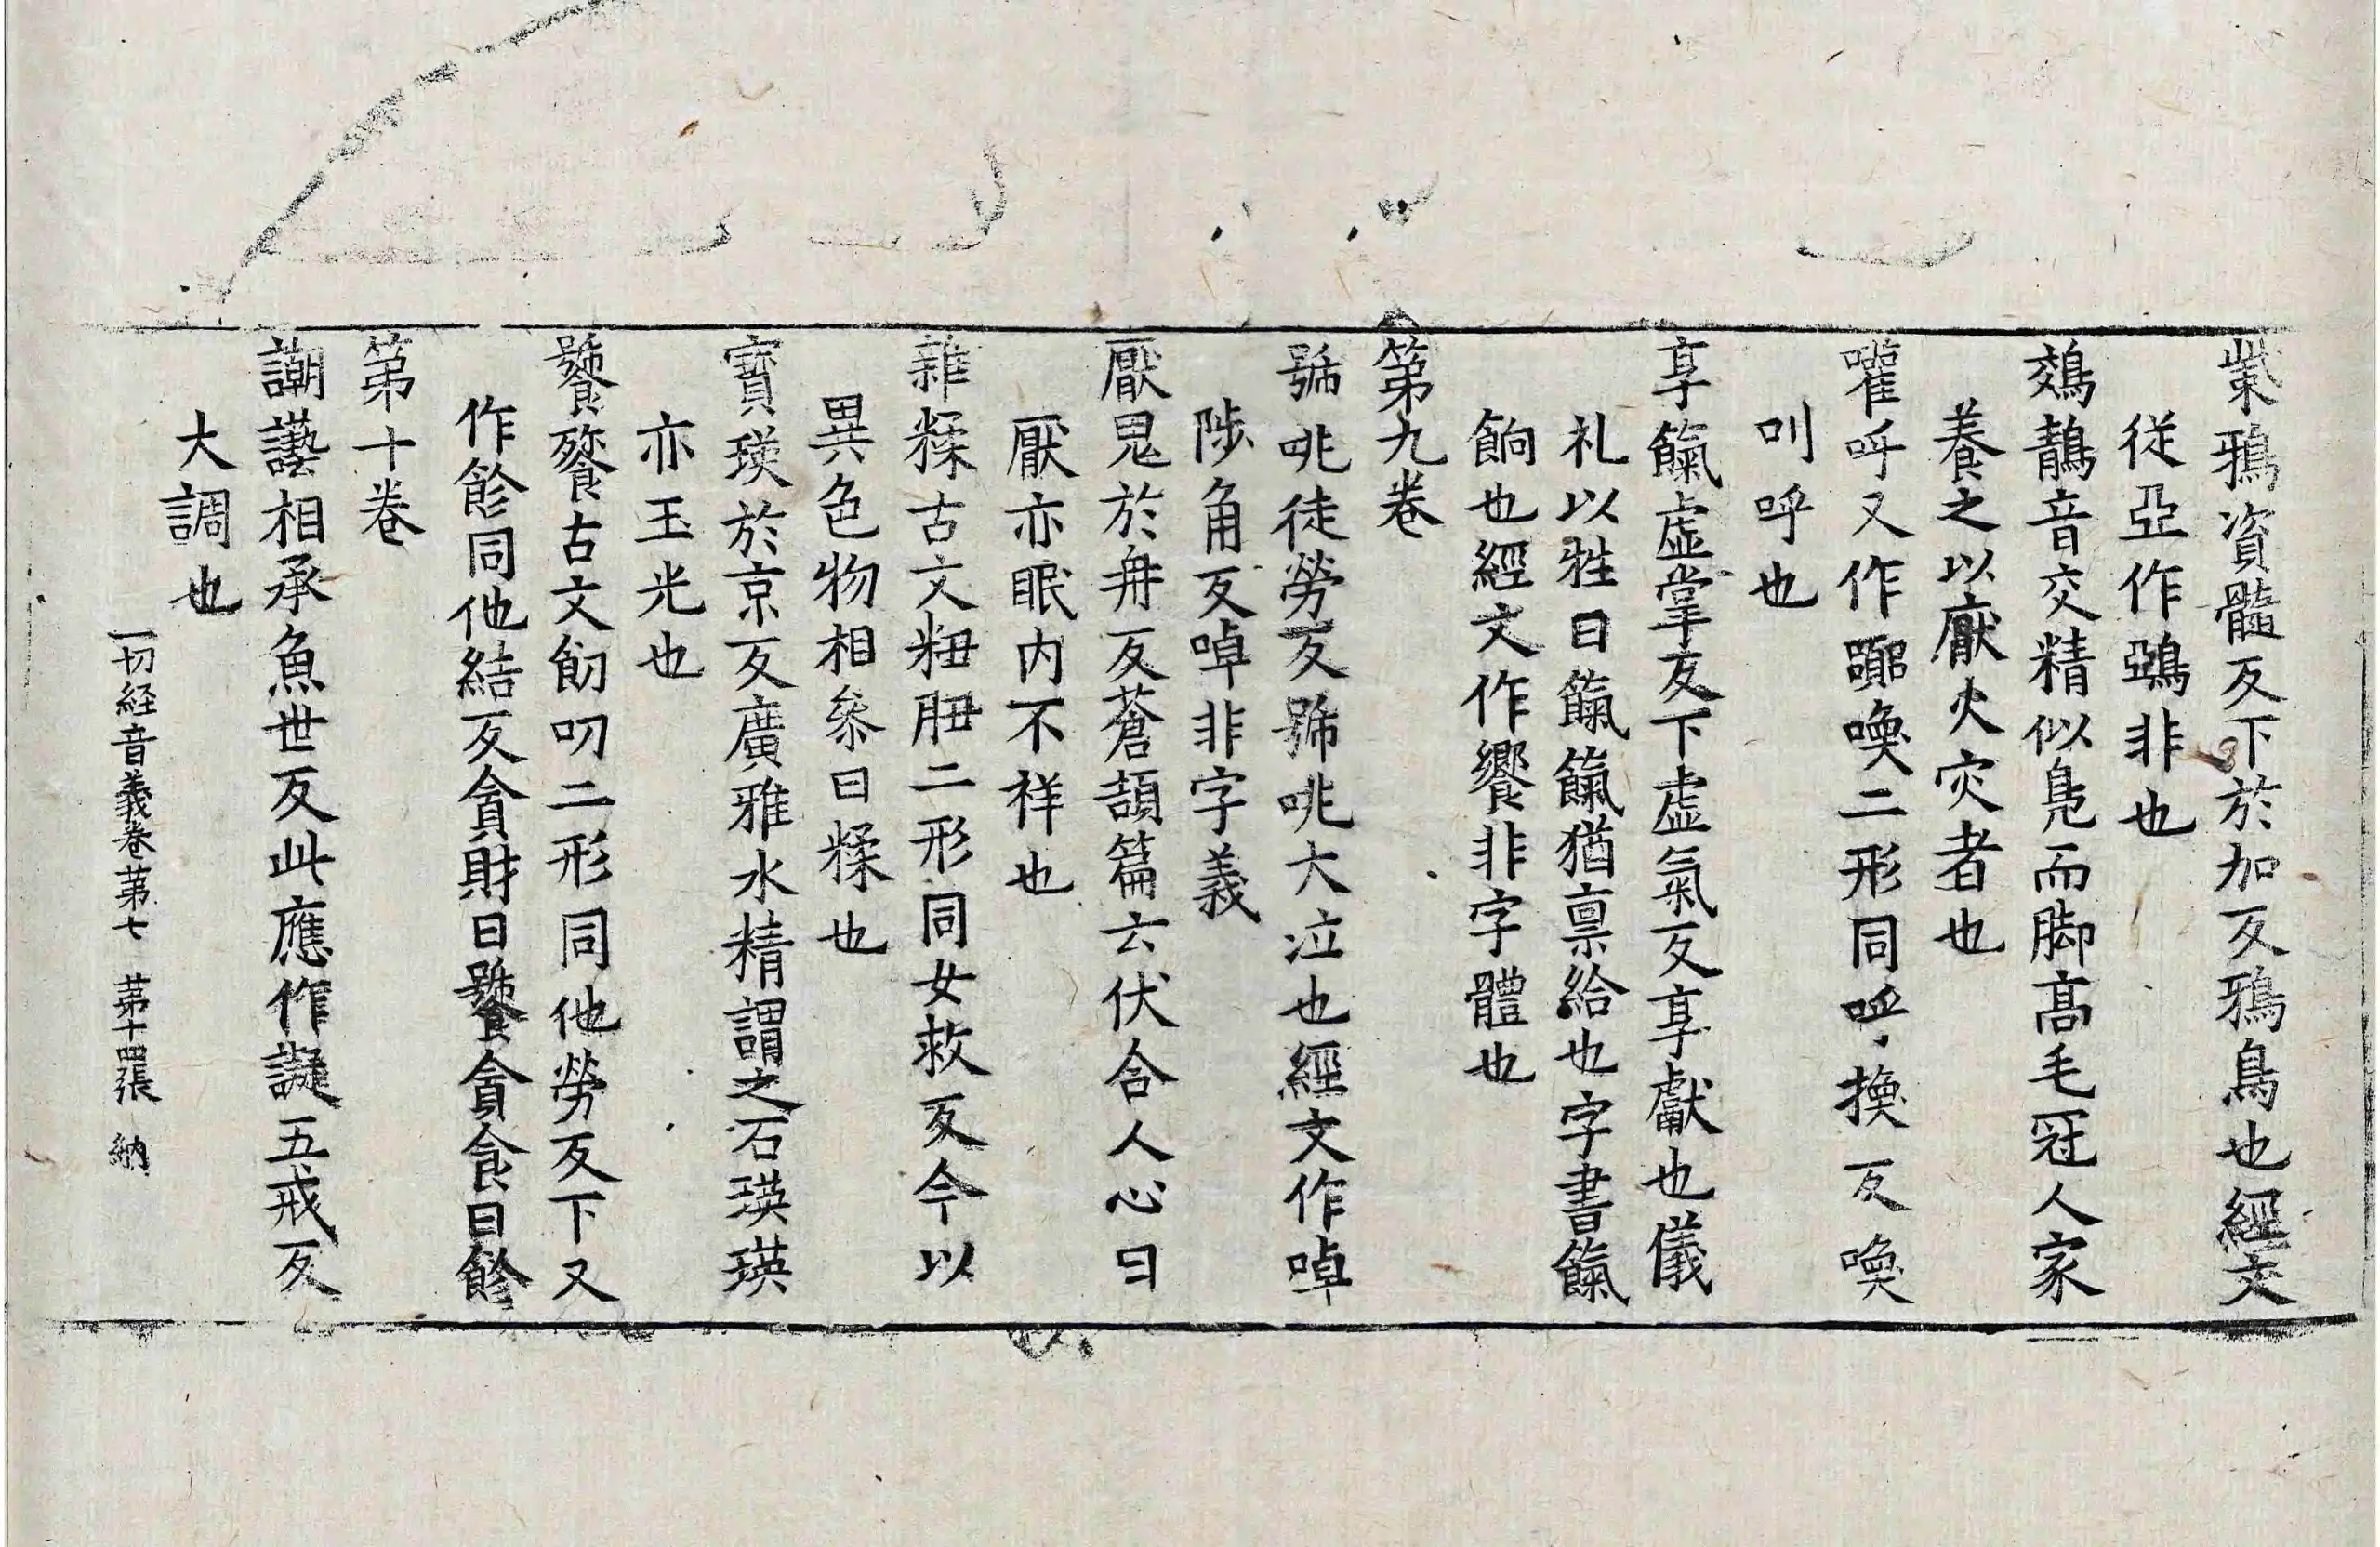 鴜鴉資髓反下於加反鴉鳥也經文
從亞作鵶非也
鵁鶄音交精似鳧而脚高毛冠人家
養之以厭火灾者也
嚾呼又作讙喚二形同呼換反喚
叫呼也
享餼虛掌反下虛氣反享獻也儀
礼以牲曰餼餼猶禀給也字書餼
餉也經文作饗非字體也
第九卷
號咷徒勞反號咷大泣也經文作啅
陟角反啅非字義
厭鬼於冉反蒼頡篇云伏合人心曰
厭亦眠内不祥也
雜糅古文粈䏔二形同女救反今以
異色物相叅曰糅也
寳瑛於京反廣雅水精謂之石瑛瑛
亦玉光也
饕餮古文飷叨二形同他勞反下又
作飻同他結反貪財曰饕貪食曰飻
第十卷
謿讛相承魚世反此應作譺五戒反
大調也
一切経音義卷苐七 苐十四張 納